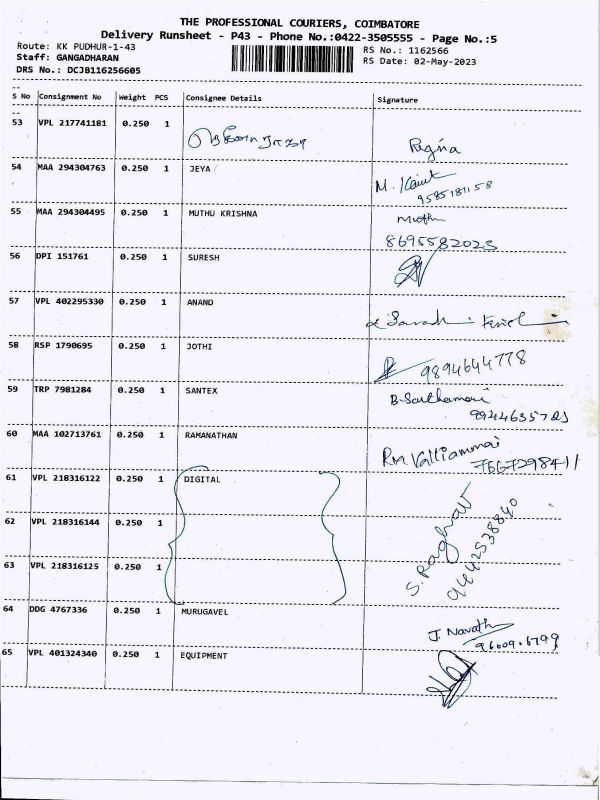 THE PROFESSIONAL COURIERS, COIMBATORE
Delivery Runsheet - P43 - Phone No.:0422-3505555 - Page No.:5
Route: KK PUDHUR-1-43 RS No.: 1162566
Staff: GANGADHARAN RS Date: 02-May-2023
DRS No.: DCJB116256605
S No Consignment No Weight PCS Consignee Details Signature
53 VPL 217741181 0.250 1 Regina
54 MAA 294304763 0.250 1 JEYA M.
9585181158
55 MAA 294304495 0.250 1 MUTHU KRISHNA Muthu
8695582023
56 DPI 151761 0.250 1 SURESH
57 VPL 402295330 0.250 1 ANAND
58 RSP 1790695 0.250 1 JOTHI 9894644778
59 TRP 7981284 0.250 1 SANTEX
60 MAA 102713761 0.250 1 RAMANATHAN RM.Valliammai
7667298411
61 VPL 218316122 0.250 1 DIGITAL S. Raghav
9442538840
62 VPL 218316144 0.250 1
63 VPL 218316125 0.250 1
64 DDG 4767336 0.250 1 MURUGAVEL J. Navath
96009.6799
65 VPL 401324340 0.250 1 EQUIPMENT